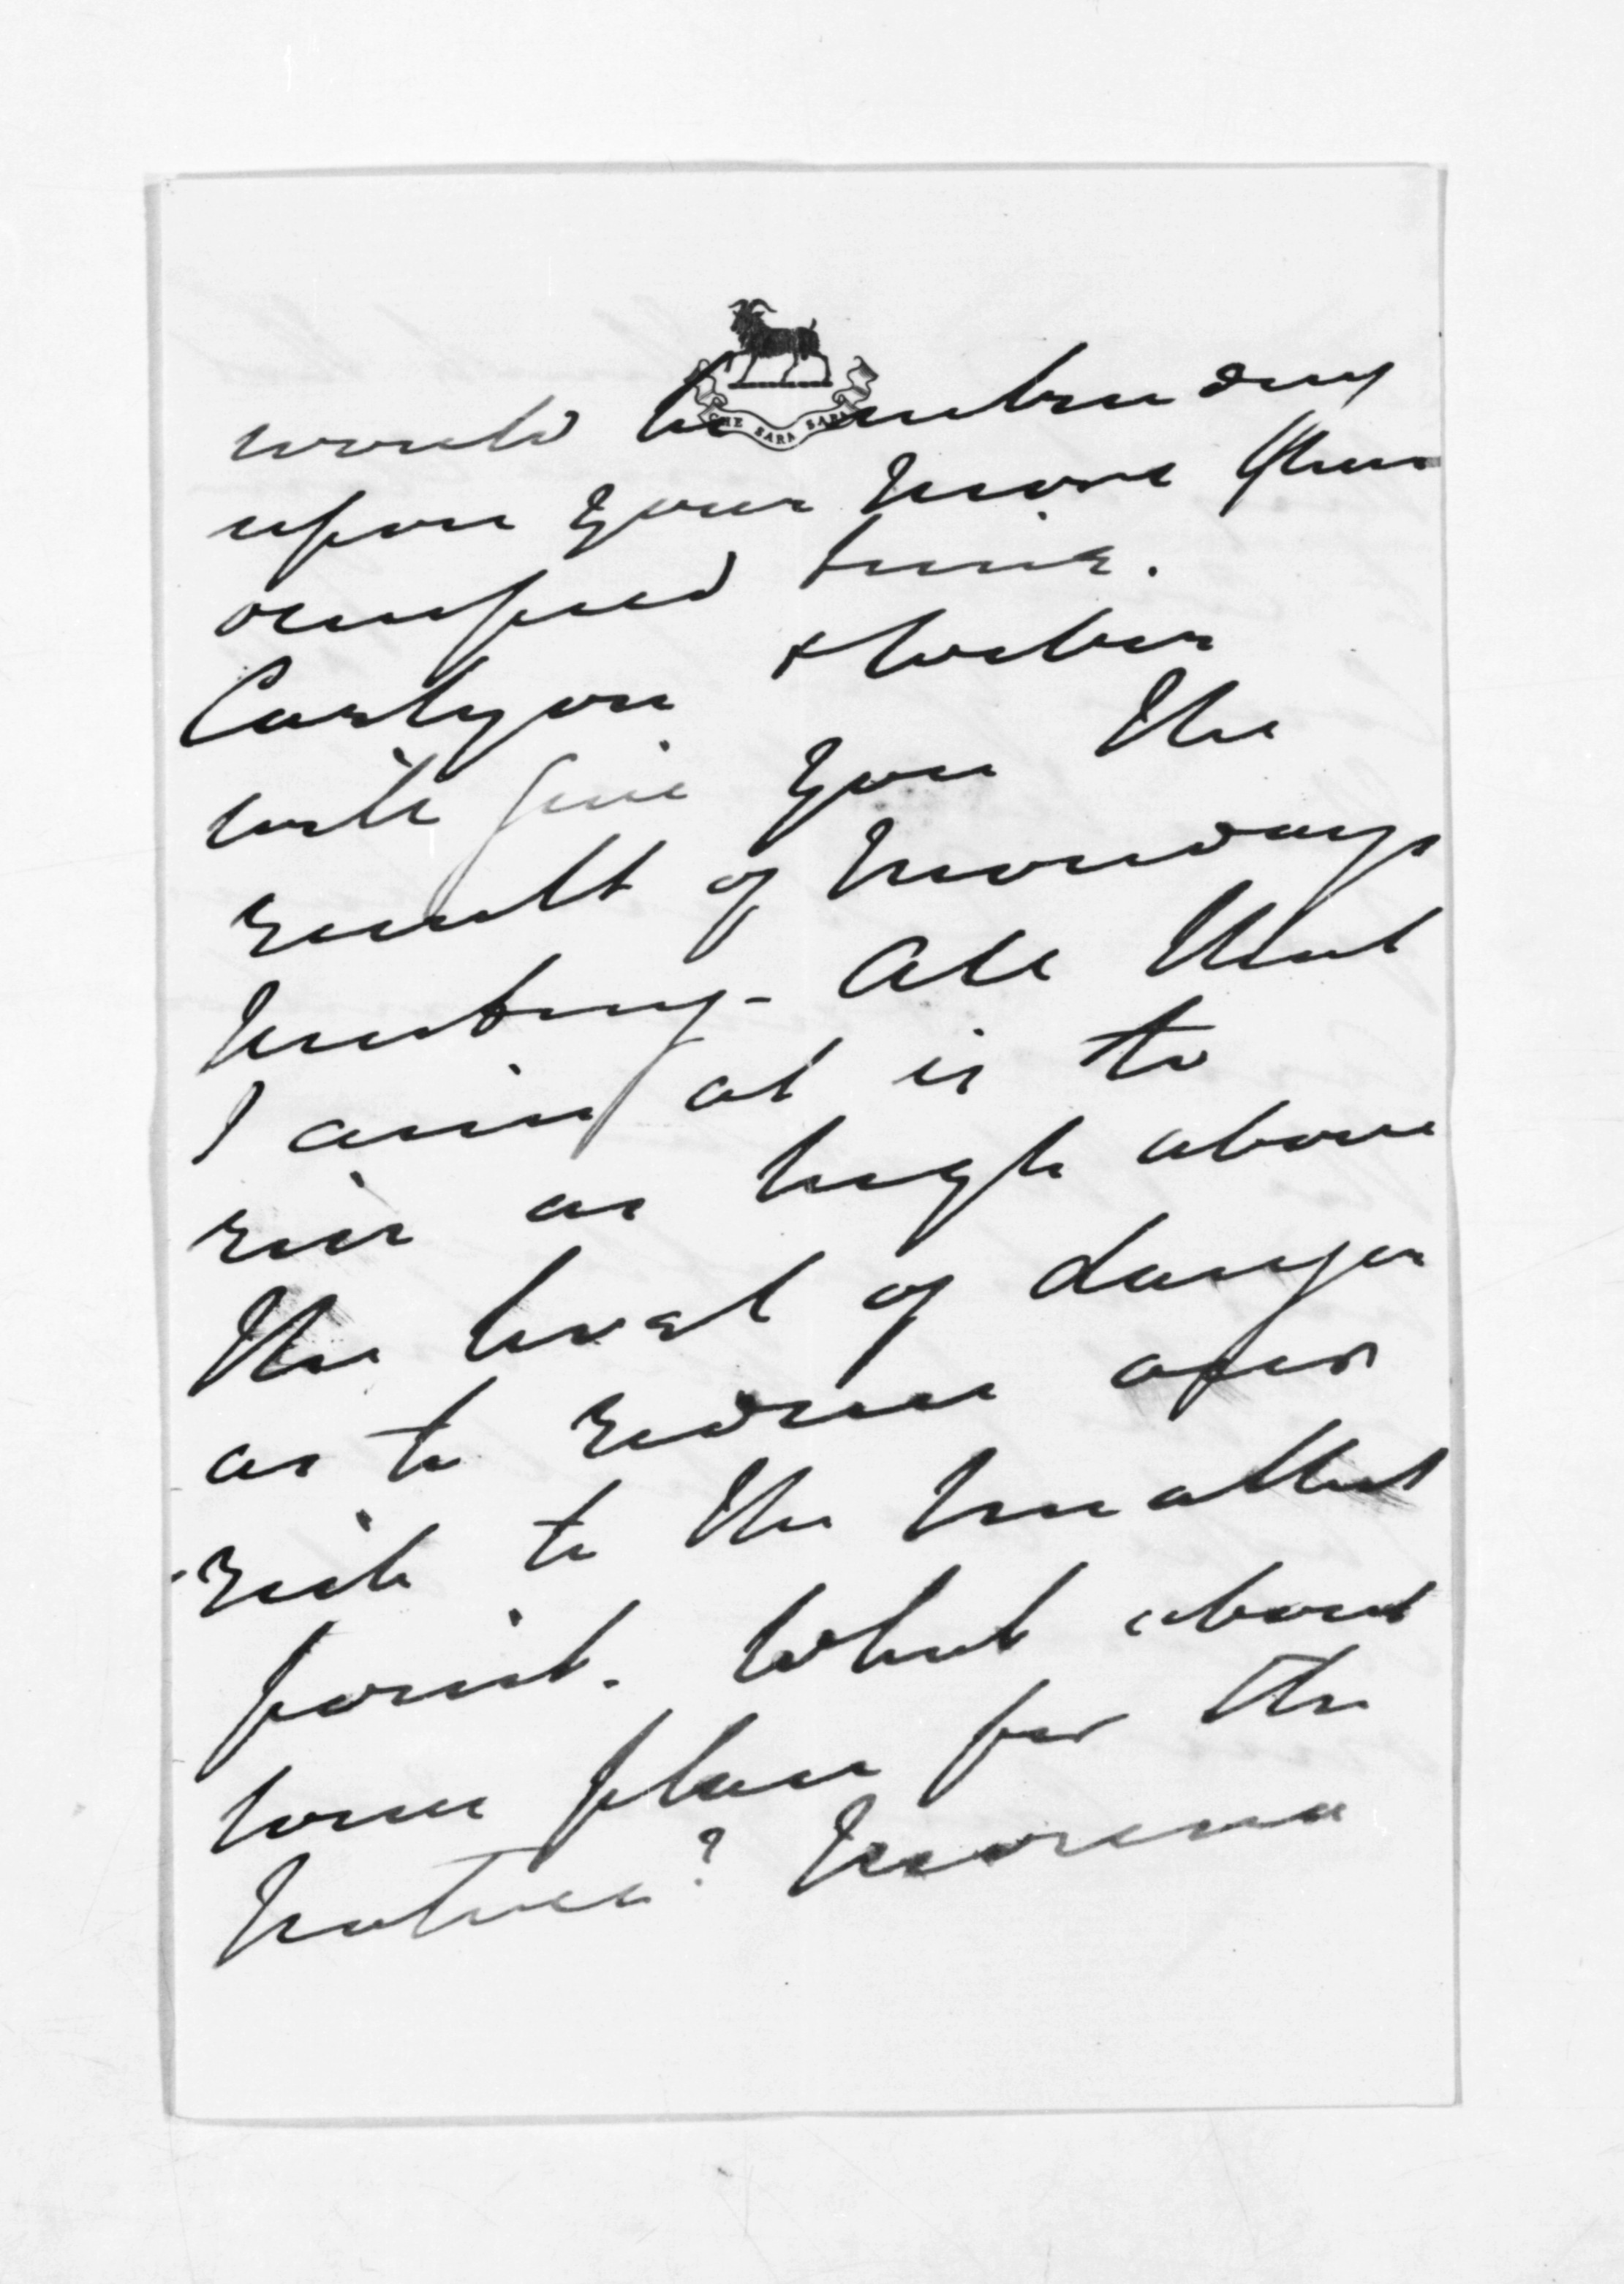 CHE SARA SARA
would be intruding
upon your more than
occupied time.
Carlyon & Walter
will give you the
result of Mondays
meeting - All that
I aim at is to
rise as high above
the level of danger
as to reduce our
risk to the smallest
point. What about
some plan for the
natives?